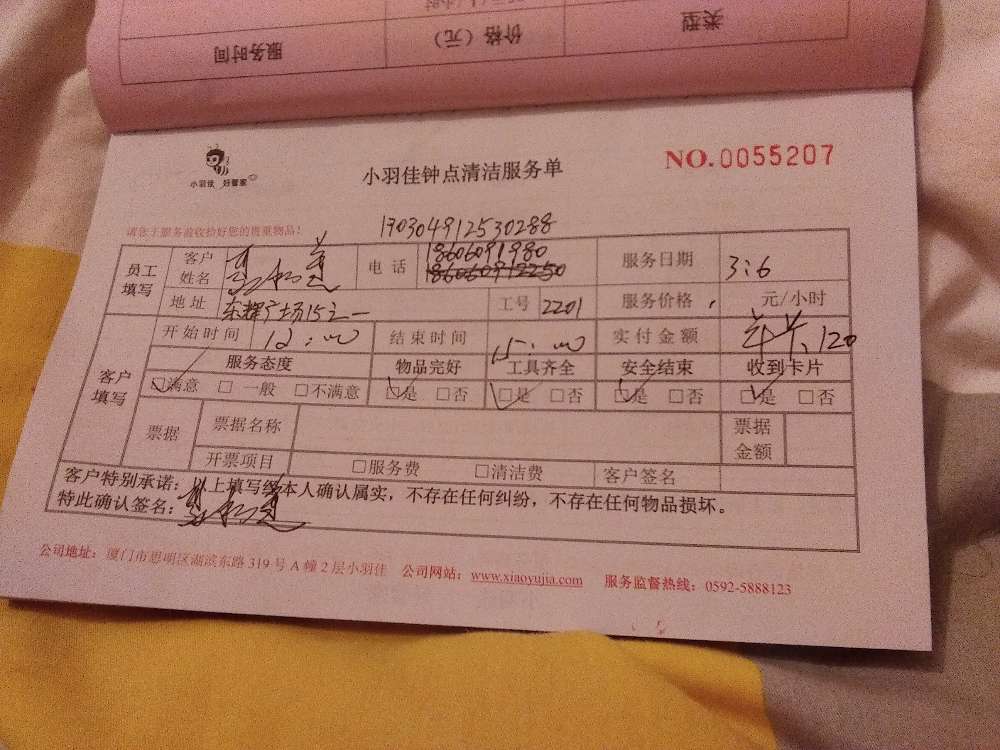 服务时间 价格（元） 类型
小羽佳 好管家
小羽佳钟点清洁服务单
NO.0055207
请您于服务前收拾好您的贵重物品！
190304912530288
员工填写 客户姓名 电话 18606091980 服务日期 3:6
地址 东辉广场15之一 工号 2201 服务价格 元/小时
客户填写 开始时间 12:00 结束时间 15:00 实付金额 年卡120
服务态度 物品完好 工具齐全 安全结束 收到卡片
☑满意 □一般 □不满意 ☑是 □否 ☑是 □否 ☑是 □否 ☑是 □否
票据 票据名称 票据金额
开票项目 □服务费 □清洁费 客户签名
客户特别承诺：以上填写经本人确认属实，不存在任何纠纷，不存在任何物品损坏。
特此确认签名：
公司地址：厦门市思明区湖滨东路319号A幢2层小羽佳 公司网站：www.xiaoyujia.com 服务监督热线：0592-5888123